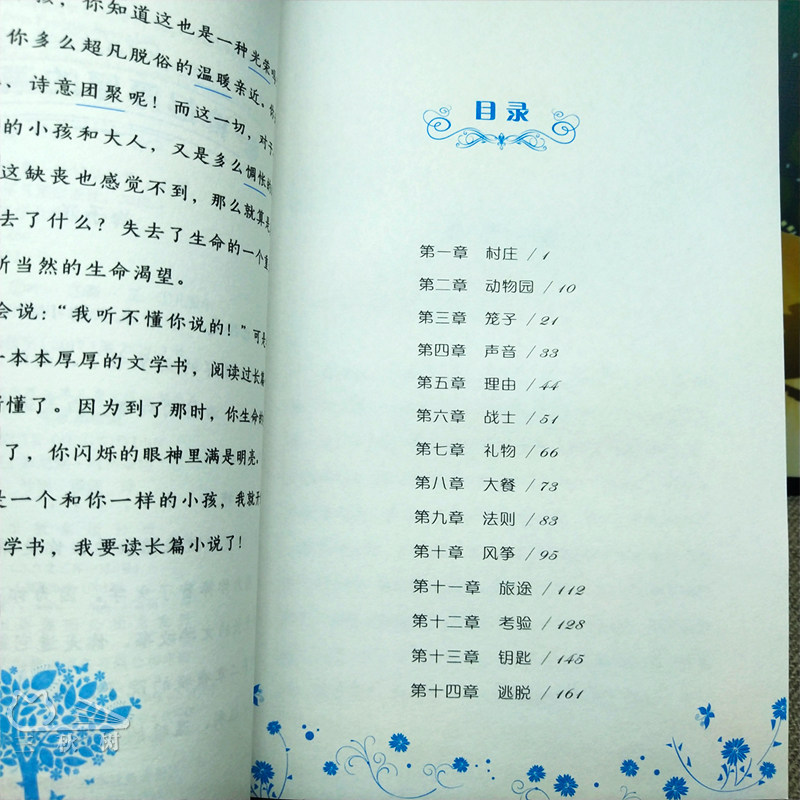 孩，你知道这也是一种光荣
你多么超凡脱俗的温暖亲近、
、诗意团聚呢！而这一切，对于
的小孩和大人，又是多么惆怅的
这缺丧也感觉不到，那么就算是
去了什么？失去了生命的一个重
所当然的生命渴望。
会说：“我听不懂你说的！”可是
一本本厚厚的文学书，阅读过长篇
听懂了。因为到了那时，你生命的
了，你闪烁的眼神里满是明亮，
是一个和你一样的小孩，我就
学书，我要读长篇小说了！
目录
第一章 村庄 / 1
第二章 动物园 / 10
第三章 笼子 / 21
第四章 声音 / 33
第五章 理由 / 44
第六章 战士 / 51
第七章 礼物 / 66
第八章 大餐 / 73
第九章 法则 / 83
第十章 风筝 / 95
第十一章 旅途 / 112
第十二章 考验 / 128
第十三章 钥匙 / 145
第十四章 逃脱 / 161
秋 树